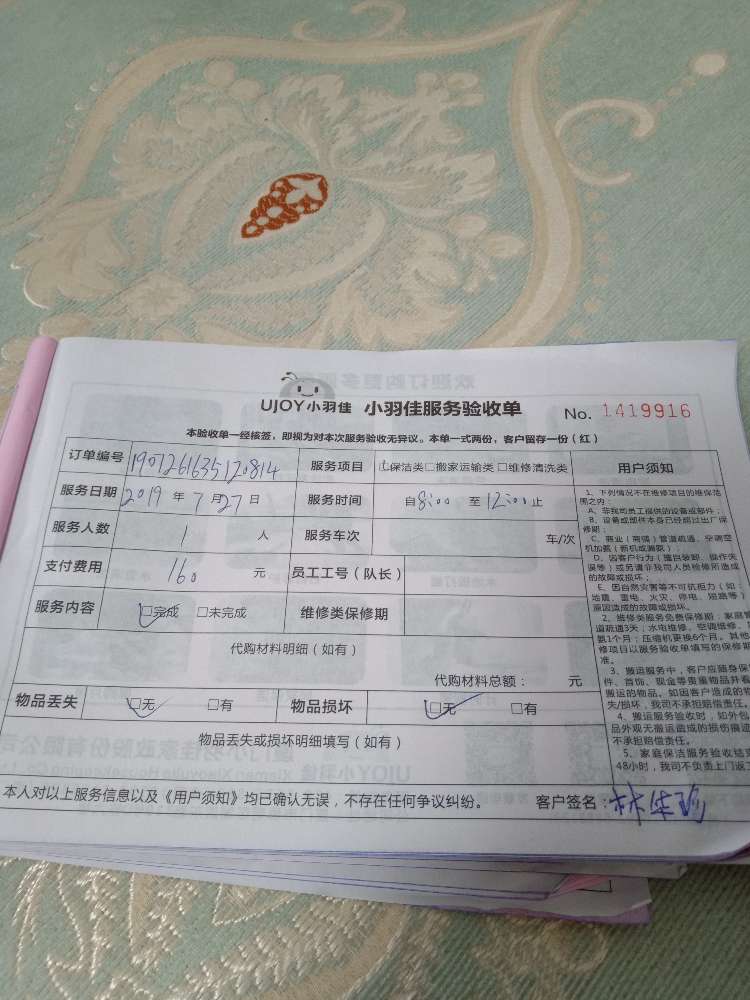 UJOY小羽佳 小羽佳服务验收单 No. 1419916
本验收单一经核签，即视为对本次服务验收无异议。本单一式两份，客户留存一份（红）
订单编号 1907261635120814 服务项目 □保洁类□搬家运输类□维修清洗类 用户须知
服务日期 2019 年 7 月 27 日 服务时间 自 8:00 至 12:00 止
服务人数 1 人 服务车次 车/次
支付费用 160 元 员工工号（队长）
服务内容 □完成 □未完成 维修类保修期
代购材料明细（如有）
代购材料总额： 元
物品丢失 □无 □有 物品损坏 □无 □有
物品丢失或损坏明细填写（如有）
本人对以上服务信息以及《用户须知》均已确认无误，不存在任何争议纠纷。 客户签名：
1、下列情况不在维修项目的维保范
围之内：
A、非我司员工提供的设备或部件；
B、设备或部件本身已经超过出厂保
修期；
C、商业（商铺）管道疏通、空调空
机加氨（新机或漏氨）；
D、因客户行为（擅自装卸、操作失
误等）或另请非我司人员检修所造成
的故障或损坏；
E、因自然灾害等不可抗拒力（如：
地震、雷电、火灾、停电、短路等）
原因造成的故障或损坏。
2、维修类服务免费保修期：家庭管
道疏通3天；水电维修、空调维修、
氨1个月；压缩机更换6个月。其他
修项目以服务验收单填写的保修期
准。
3、搬运服务中，客户应随身保
件、首饰、现金等贵重物品并看
搬运的物品。如因客户造成的
失/损坏，我司不承担赔偿责任。
4、搬运服务验收时，如外包
品外观无搬运造成的损伤痕迹
不承担赔偿责任。
5、家庭保洁服务验收结束
48小时，我司不负责上门返工